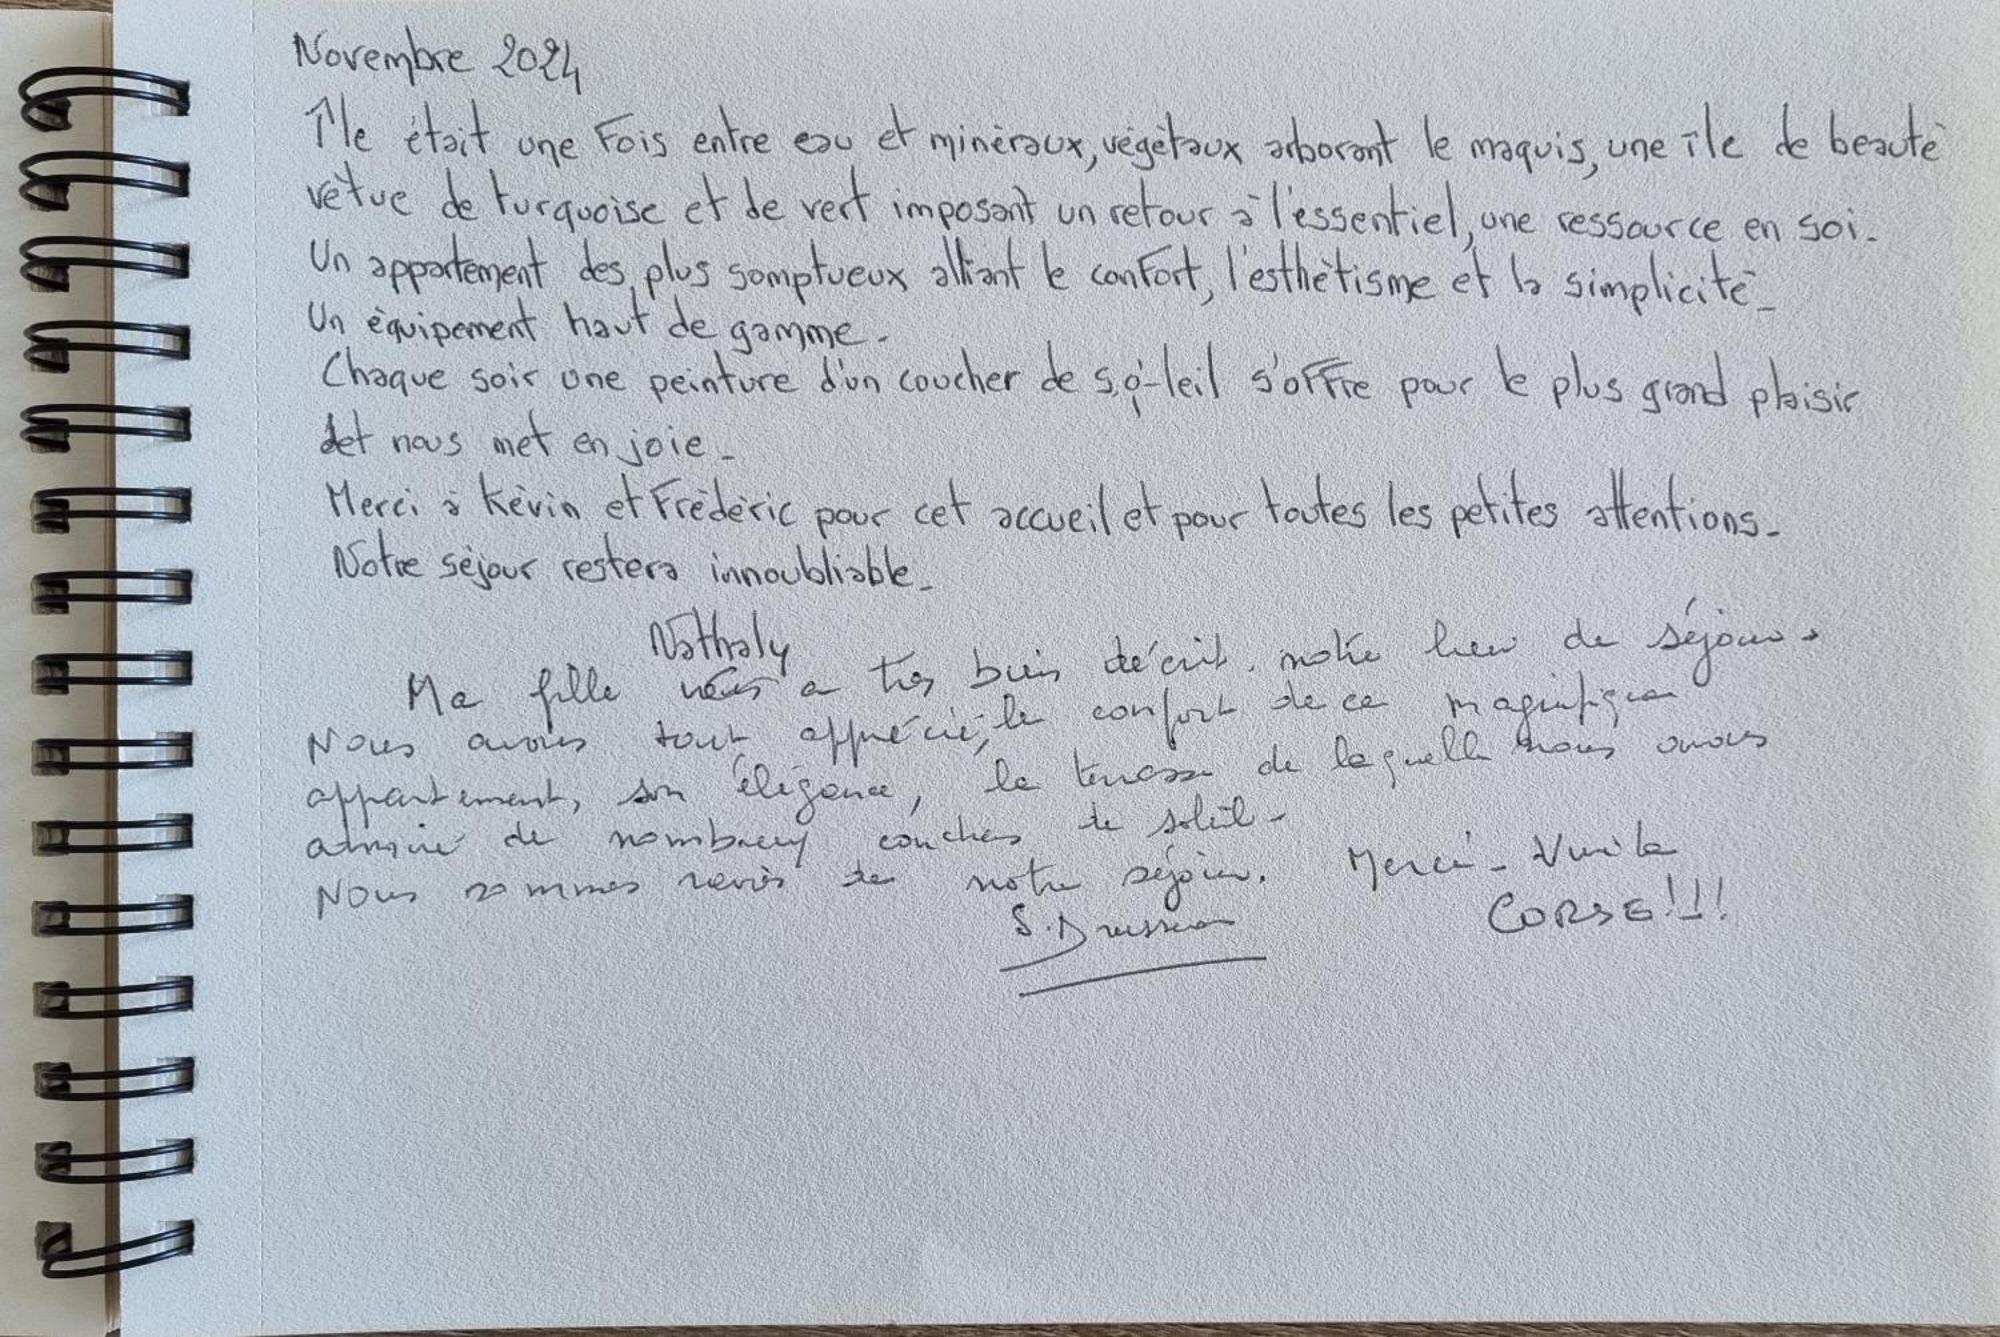 Novembre 2024
Île était une Fois entre eau et minéraux, végétaux arborant le maquis, une île de beauté
vêtue de turquoise et de vert imposant un retour à l'essentiel, une ressource en soi.
Un appartement des plus somptueux alliant le confort, l'esthétisme et la simplicité_
Un équipement haut de gamme.
Chaque soir une peinture d'un coucher de so-leil s'offre pour le plus grand plaisir
et nous met en joie_
Merci à Kévin et Frédéric pour cet accueil et pour toutes les petites attentions_
Notre séjour restera innoubliable_
Nathaly
Ma fille a très bien décrit notre lieu de séjour.
Nous avons tout apprécié, le confort de ce magnifique
appartement, son élégance, la terrasse de laquelle nous avons
admiré de nombreux couchers de soleil-
Nous sommes ravis de notre séjour. Merci- Vive la
CORSE!!!